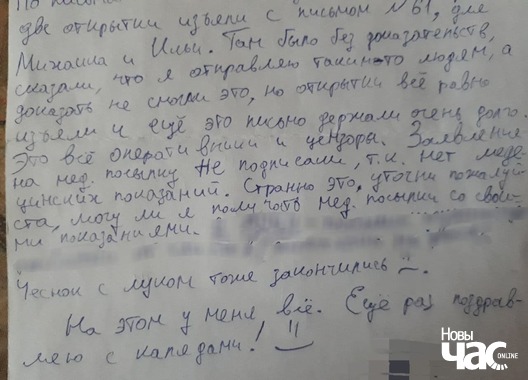 По письмам
две открытки изъяли с письмом №61, для
Михаила и Ильи. Там было без доказательств,
сказали, что я отправляю таким-то людям, а
доказать не смогли это, но открытки всё равно
изъяли и ещё это письмо держали очень долго.
Это всё оперативники и цензоры. Заявление
на мед. посылку Не подписали, т.к. нет меди-
цинских показаний. Странно это, уточни пожалуй-
ста, могу ли я получать мед. посылки со свои-
ми показаниями.
Чеснок с луком тоже закончились
На этом у меня всё. Ещё раз поздрав-
ляю с калядами!
Новы
Час
ONLINE